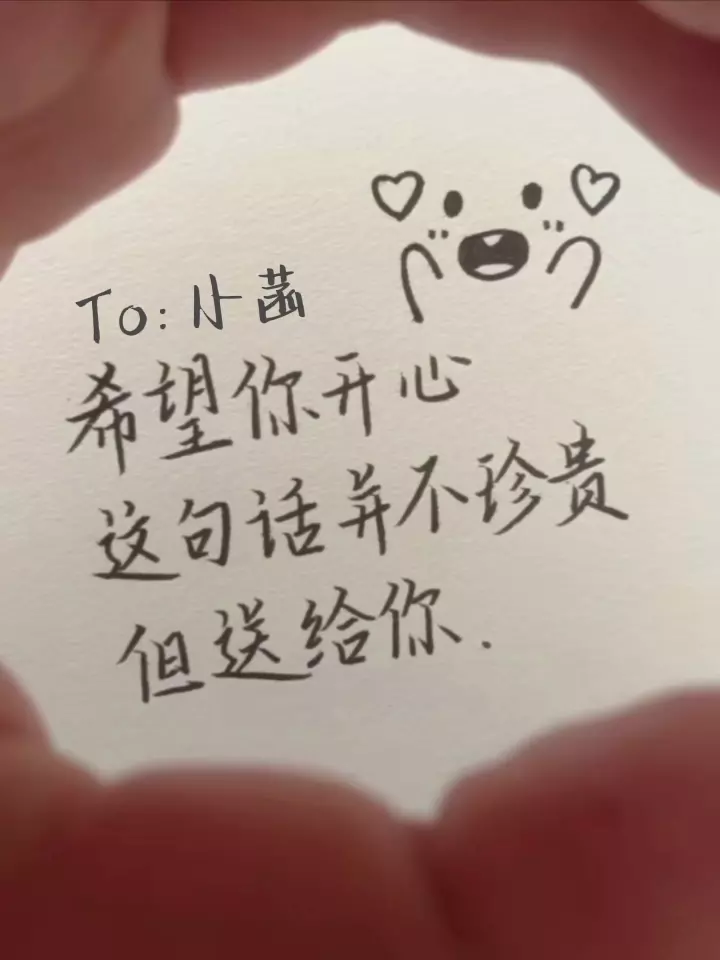 To: 小菡
希望你开心
这句话并不珍贵
但送给你.